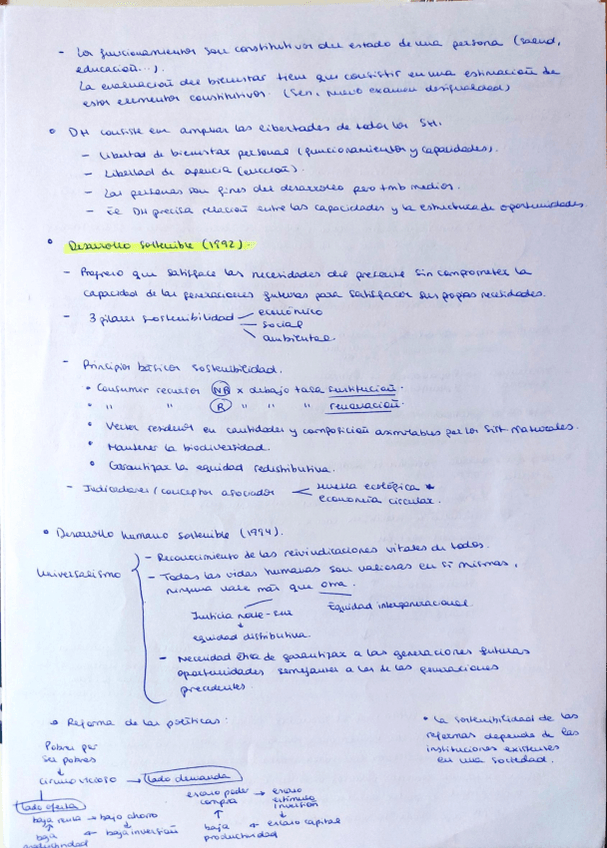 - Los funcionamientos son constitutivos del estado de una persona (salud,
educación...).
La evaluación del bienestar tiene que consistir en una estimación de
estos elementos constitutivos. (Sen, nuevo examen desigualdad)
• DH consiste en ampliar las libertades de todos los SH.
- Libertad de bienestar personal (funcionamientos y capacidades).
- Libertad de agencia (elección).
- Las personas son fines del desarrollo pero tmb medios.
- El DH precisa relación entre las capacidades y la estructura de oportunidades.
• Desarrollo Sostenible (1992).
- Progreso que satisface las necesidades del presente sin comprometer la
capacidad de las generaciones futuras para satisfacer sus propias necesidades.
- 3 pilares sostenibilidad — económico
— social
— ambiental.
- Principios básicos sostenibilidad.
• Consumir recursos NR x debajo tasa sustitución.
• " " R " " " renovación.
• Verter residuos en cantidades y composición asimilables por los Sist. Naturales.
• Mantener la biodiversidad.
• Garantizar la equidad redistributiva.
- Indicadores/conceptos asociados < huella ecológica
economía circular.
• Desarrollo humano sostenible (1994).
Universalismo
- Reconocimiento de las reivindicaciones vitales de todos.
- Todas las vidas humanas son valiosas en sí mismas,
ninguna vale más que otra.
Justicia norte-sur Equidad intergeneracional
↓
equidad distributiva
- Necesidad ética de garantizar a las generaciones futuras
oportunidades semejantes a las de las generaciones
precedentes.
• Reforma de las políticas:
Pobres por
ser pobres
↓
círculo vicioso → lado demanda
escaso poder compra → escaso estímulo inversión
↑ ↓
baja productividad ← escaso capital
lado oferta
baja renta → bajo ahorro
↑ ↓
baja productividad ← baja inversión
• La sostenibilidad de las
reformas depende de las
instituciones existentes
en una sociedad.